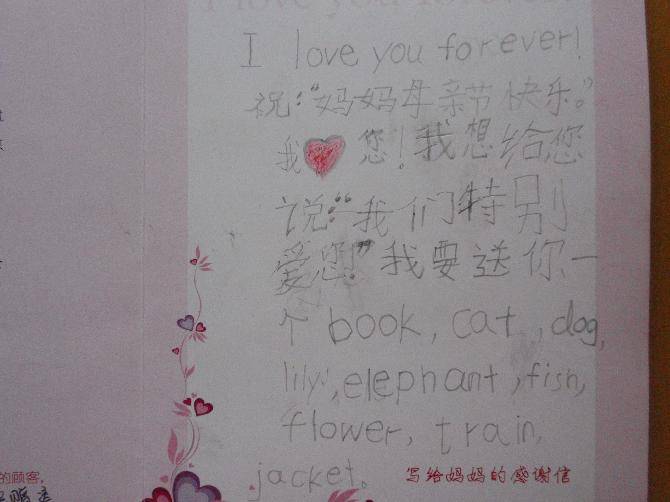 I love you forever!
祝:“妈妈母亲节快乐。”
我 您!我想给您
说:“我们特别
爱您!”我要送你一
个 book, cat, dog,
lily, elephant, fish,
flower, train,
jacket。
写给妈妈的感谢信
的顾客,